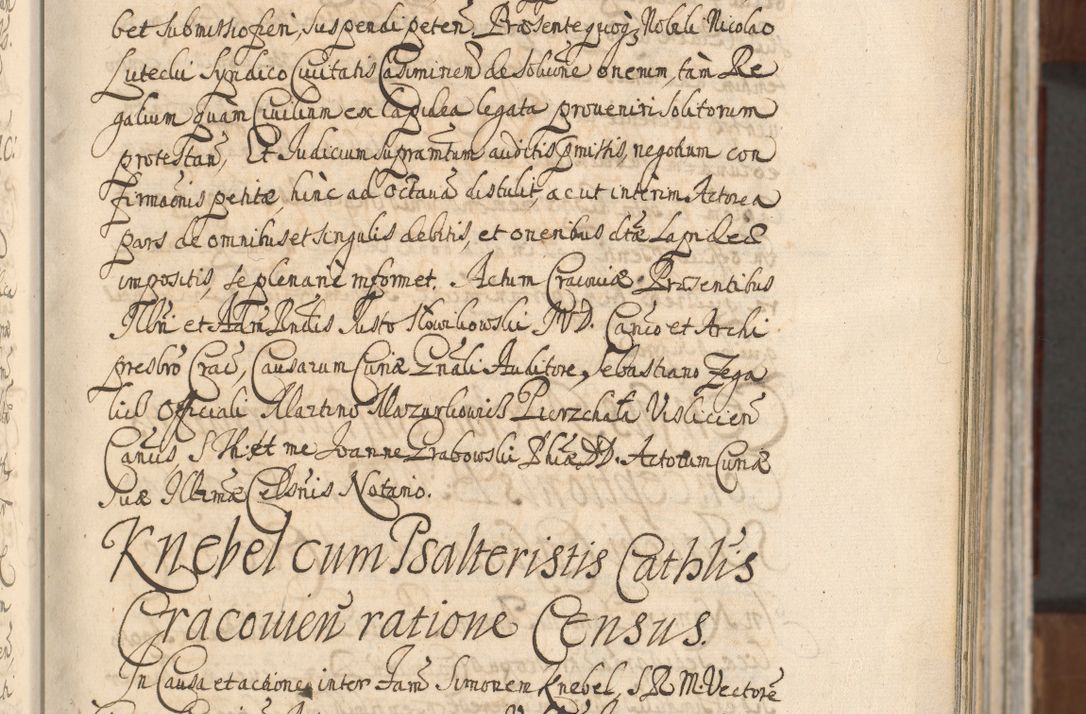 bet submissiofieri, suspendi peteñ. Præsente quoq3 Nobili Nicolao
Lutecki Syndico Ciuitatis Casimirień de solũone onerum, tàm Re
galium quam Ciuilium ex lapidea legata proueniri solitorum
protestañ, Et Judicium supram̃tum auditis p̃missis, negotium con
firmaõnis petitæ, hinc ad Octauã distulit, ac ut interim Actorea
pars de omnibus et singulis debitis, et oneribus dt̃æ Lapideæ
impositis, se plenariè informet. Actum Cracouiæ Præsentibus
Illr̃i et Adm̃ Rñdis Justo Słowikowski JVD. Cañco et Archi
presbr̃o Crac̃, Causarum Curiæ Gñali Auditore, Sebastiano Zega
licki Officiali Martino Mazurkowic Pierzchała Visliciens̃
Cañcis S Th: et me Joanne Grabowski Phiæ D. Actorum Curiæ
Suæ Illm̃æ Celsñis Notario.
Knebel cum Psalteristis Cathlĩs
Cracouień ratione Census.
In Causa et actione inter Fam̃ Simonem Knebel, S R M. Vectorẽ